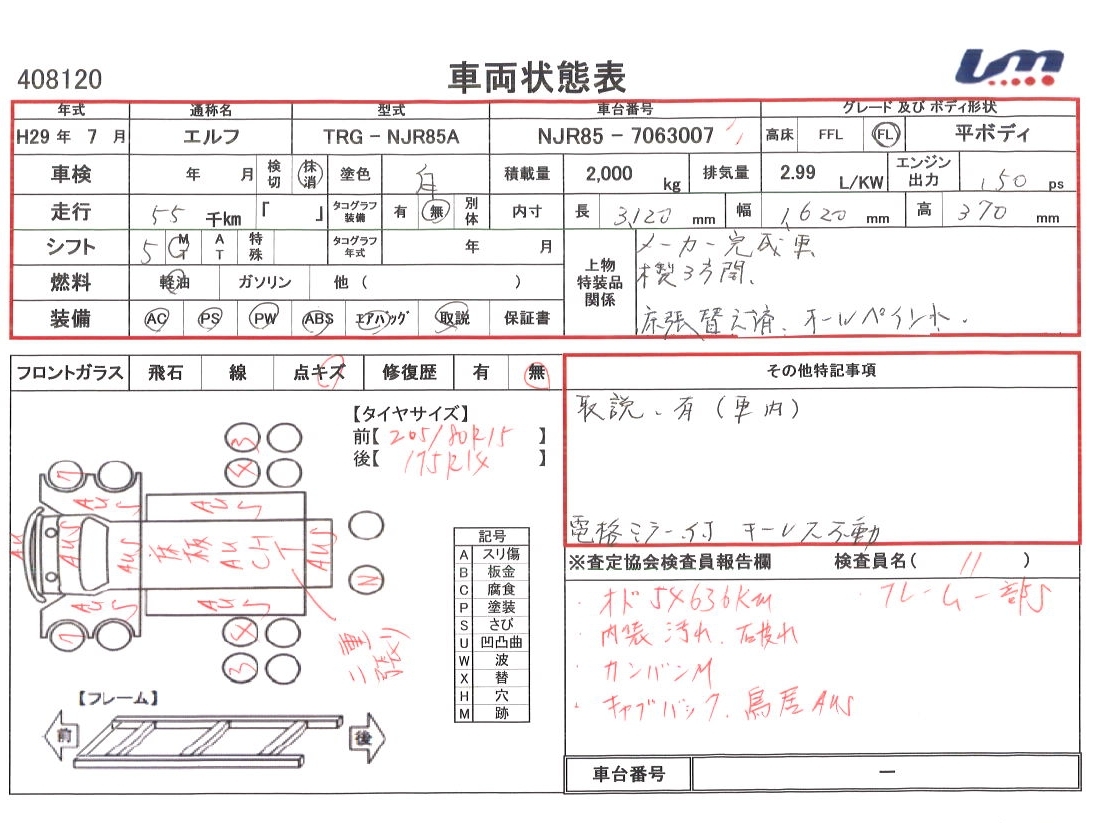 408120
車両状態表
年式 通称名 型式 車台番号 グレード 及び ボディ形状
H29 年 7 月 エルフ TRG - NJR85A NJR85 - 7063007 高床 FFL FL 平ボディ
車検 年 月 検切 抹消 塗色 白 積載量 2,000 kg 排気量 2.99 L/KW エンジン出力 150 ps
走行 55 千km 「 」 タコグラフ装備 有 無 別体 内寸 長 3,120 mm 幅 1,620 mm 高 370 mm
シフト 5 MT AT 特殊 タコグラフ年式 年 月 上物特装品関係 メーカー完成車
燃料 軽油 ガソリン 他 ( ) 木製3方開、
装備 AC PS PW ABS エアバッグ 取説 保証書 床張替え済、オールペイント.
フロントガラス 飛石 線 点キズ 修復歴 有 無 その他特記事項
【タイヤサイズ】
前【 205/80R15 】
後【 175R14 】
取説、有(車内)
電格ミラー付 キーレス不動
3
4
7
AUS
AUS
AU
AUS
AUS
床板
AU
CH
T
AUS
N
AUS
AUS
7
4
3
二重張り
【フレーム】
前
後
記号
A スリ傷
B 板金
C 腐食
P 塗装
S さび
U 凹凸曲
W 波
X 替
H 穴
M 跡
※査定協会検査員報告欄 検査員名( 11 )
・オド 54636Km ・フレーム一部S
・内装 汚れ、石皮れ
・カンバンM
・キャブバック、鳥居AUS
車台番号 ー